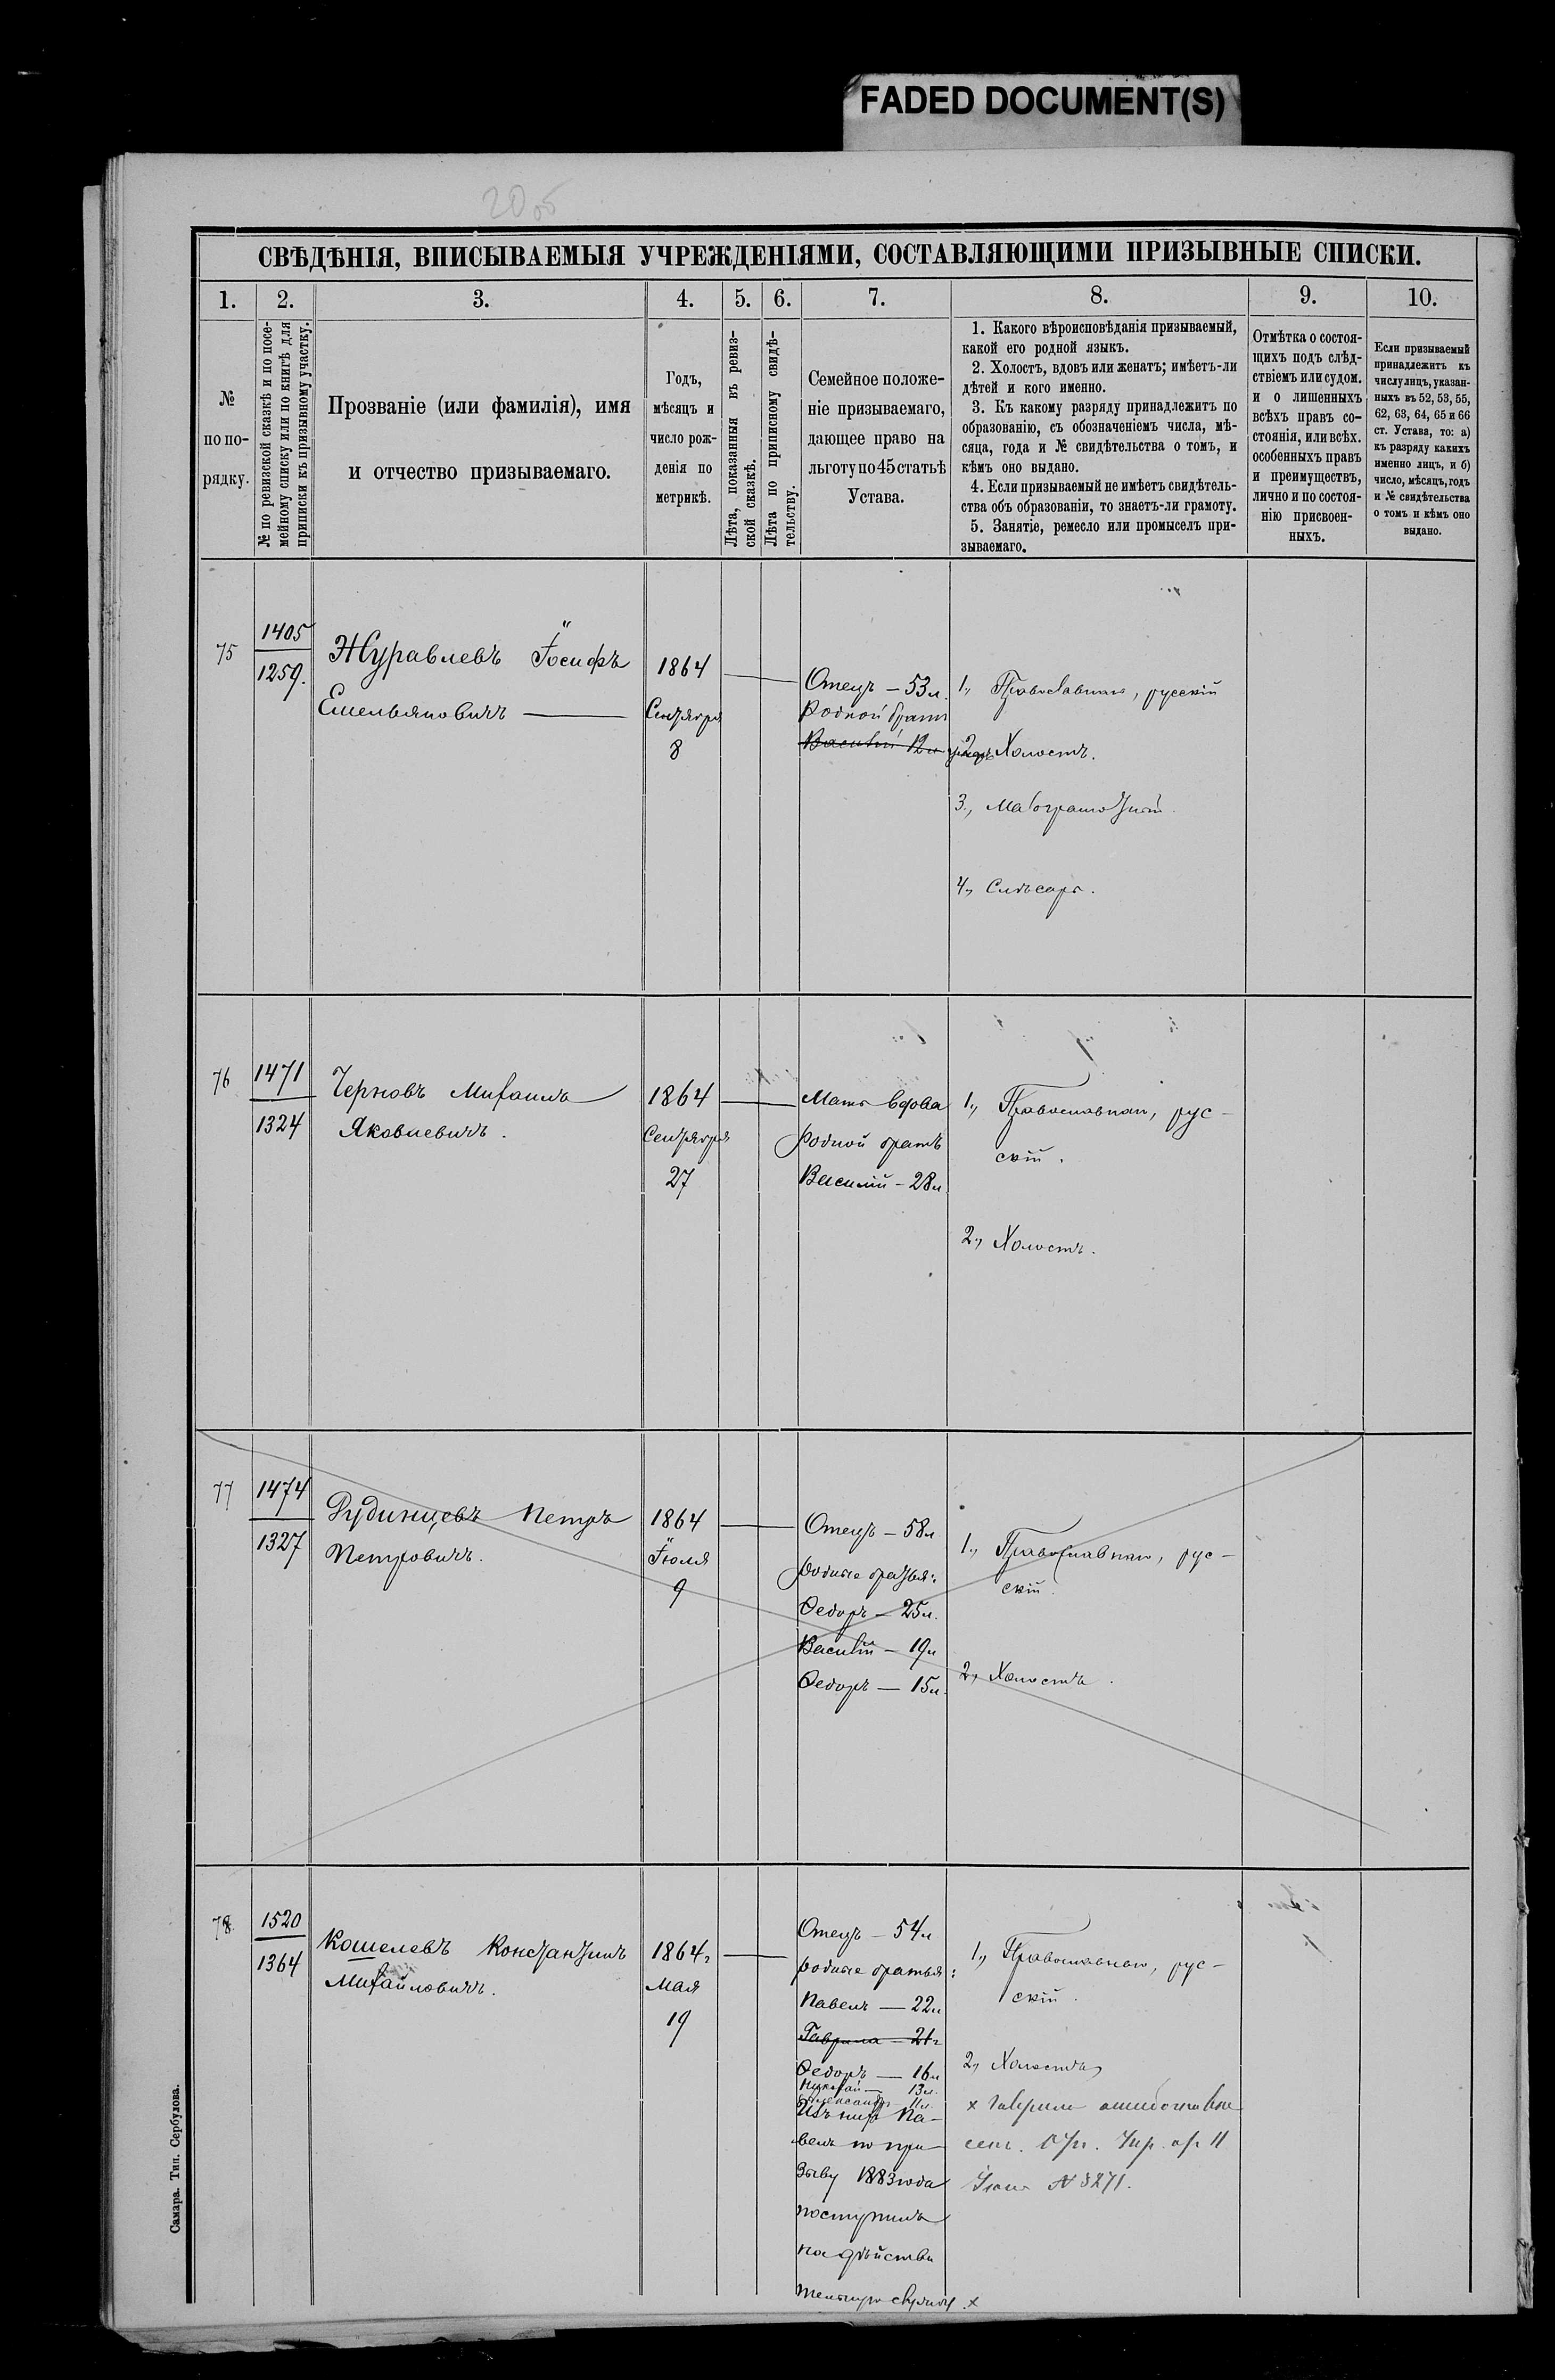 FADED DOCUMENT(S)
20 об
СВѢДѢНІЯ, ВПИСЫВАЕМЫЯ УЧРЕЖДЕНІЯМИ, СОСТАВЛЯЮЩИМИ ПРИЗЫВНЫЕ СПИСКИ.
1.
2.
3.
4.
5.
6.
7.
8.
9.
10.
№
по по-
рядку.
№ по ревизской сказкѣ и по посе-
мейному списку или по книгѣ для
приписки къ призывному участку.
Прозваніе (или фамилія), имя
и отчество призываемаго.
Годъ,
мѣсяцъ и
число рож-
денія по
метрикѣ.
Лѣта, показанныя въ ревиз-
ской сказкѣ.
Лѣта по приписному свидѣ-
тельству.
Семейное положе-
ніе призываемаго,
дающее право на
льготу по 45 статьѣ
Устава.
1. Какого вѣроисповѣданія призываемый,
какой его родной языкъ.
2. Холостъ, вдовъ или женатъ; имѣетъ-ли
дѣтей и кого именно.
3. Къ какому разряду принадлежитъ по
образованію, съ обозначеніемъ числа, мѣ-
сяца, года и № свидѣтельства о томъ, и
кѣмъ оно выдано.
4. Если призываемый не имѣетъ свидѣтель-
ства объ образованіи, то знаетъ-ли грамоту.
5. Занятіе, ремесло или промыселъ при-
зываемаго.
Отмѣтка о состоя-
щихъ подъ слѣд-
ствіемъ или судом.
и о лишенныхъ
всѣхъ правъ со-
стоянія, или всѣх.
особенныхъ правъ
и преимуществъ,
лично и по состоя-
нію присвоен-
ныхъ.
Если призываемый
принадлежитъ къ
числу лицъ, указан-
ныхъ въ 52, 53, 55,
62, 63, 64, 65 и 66
ст. Устава, то: а)
къ разряду какихъ
именно лицъ, и б)
число, мѣсяцъ, годъ
и № свидѣтельства
о томъ и кѣмъ оно
выдано.
75
1405
1259.
Журавлевъ Іосифъ
Емельяновичъ
1864
Сентября
8
Отецъ — 53 л.
Родной братъ
Василій 12 л
1., Православнаго, русскій
2., Холостъ.
3., Малограмотный.
4., Слѣсарь.
76
1471
1324
Черновъ Михаилъ
Яковлевичъ.
1864
Сентября
27
Мать вдова
родной братъ
Василій — 28 л
1., Православнаго, рус-
скій.
2., Холостъ.
77
1474
1327
Рудинцевъ Петръ
Петровичъ.
1864
Іюля
9
Отецъ — 58 л
родные братья:
Ѳедоръ — 25 л.
Василій — 19 л
Ѳедоръ — 15 л.
1., Православнаго, рус-
скій.
2., Холостъ.
78.
1520
1364
Кошелевъ Константинъ
Михайловичъ.
1864 г
Мая
19
Отецъ — 54 л
родные братья:
Павелъ — 22 л
Гаврила — 21 г
Ѳедоръ — 16 л
Николай — 13 л.
Александръ — 11 л.
Изъ нихъ Па-
велъ по при-
зыву 1883 года
поступилъ
на дѣйстви
тельную службу x
1., Православнаго, рус-
скій.
2., Холостъ
x Гаврила ошибочно вне
сенъ. 11
№ 3271.
Самара. Тип. Сербулова.